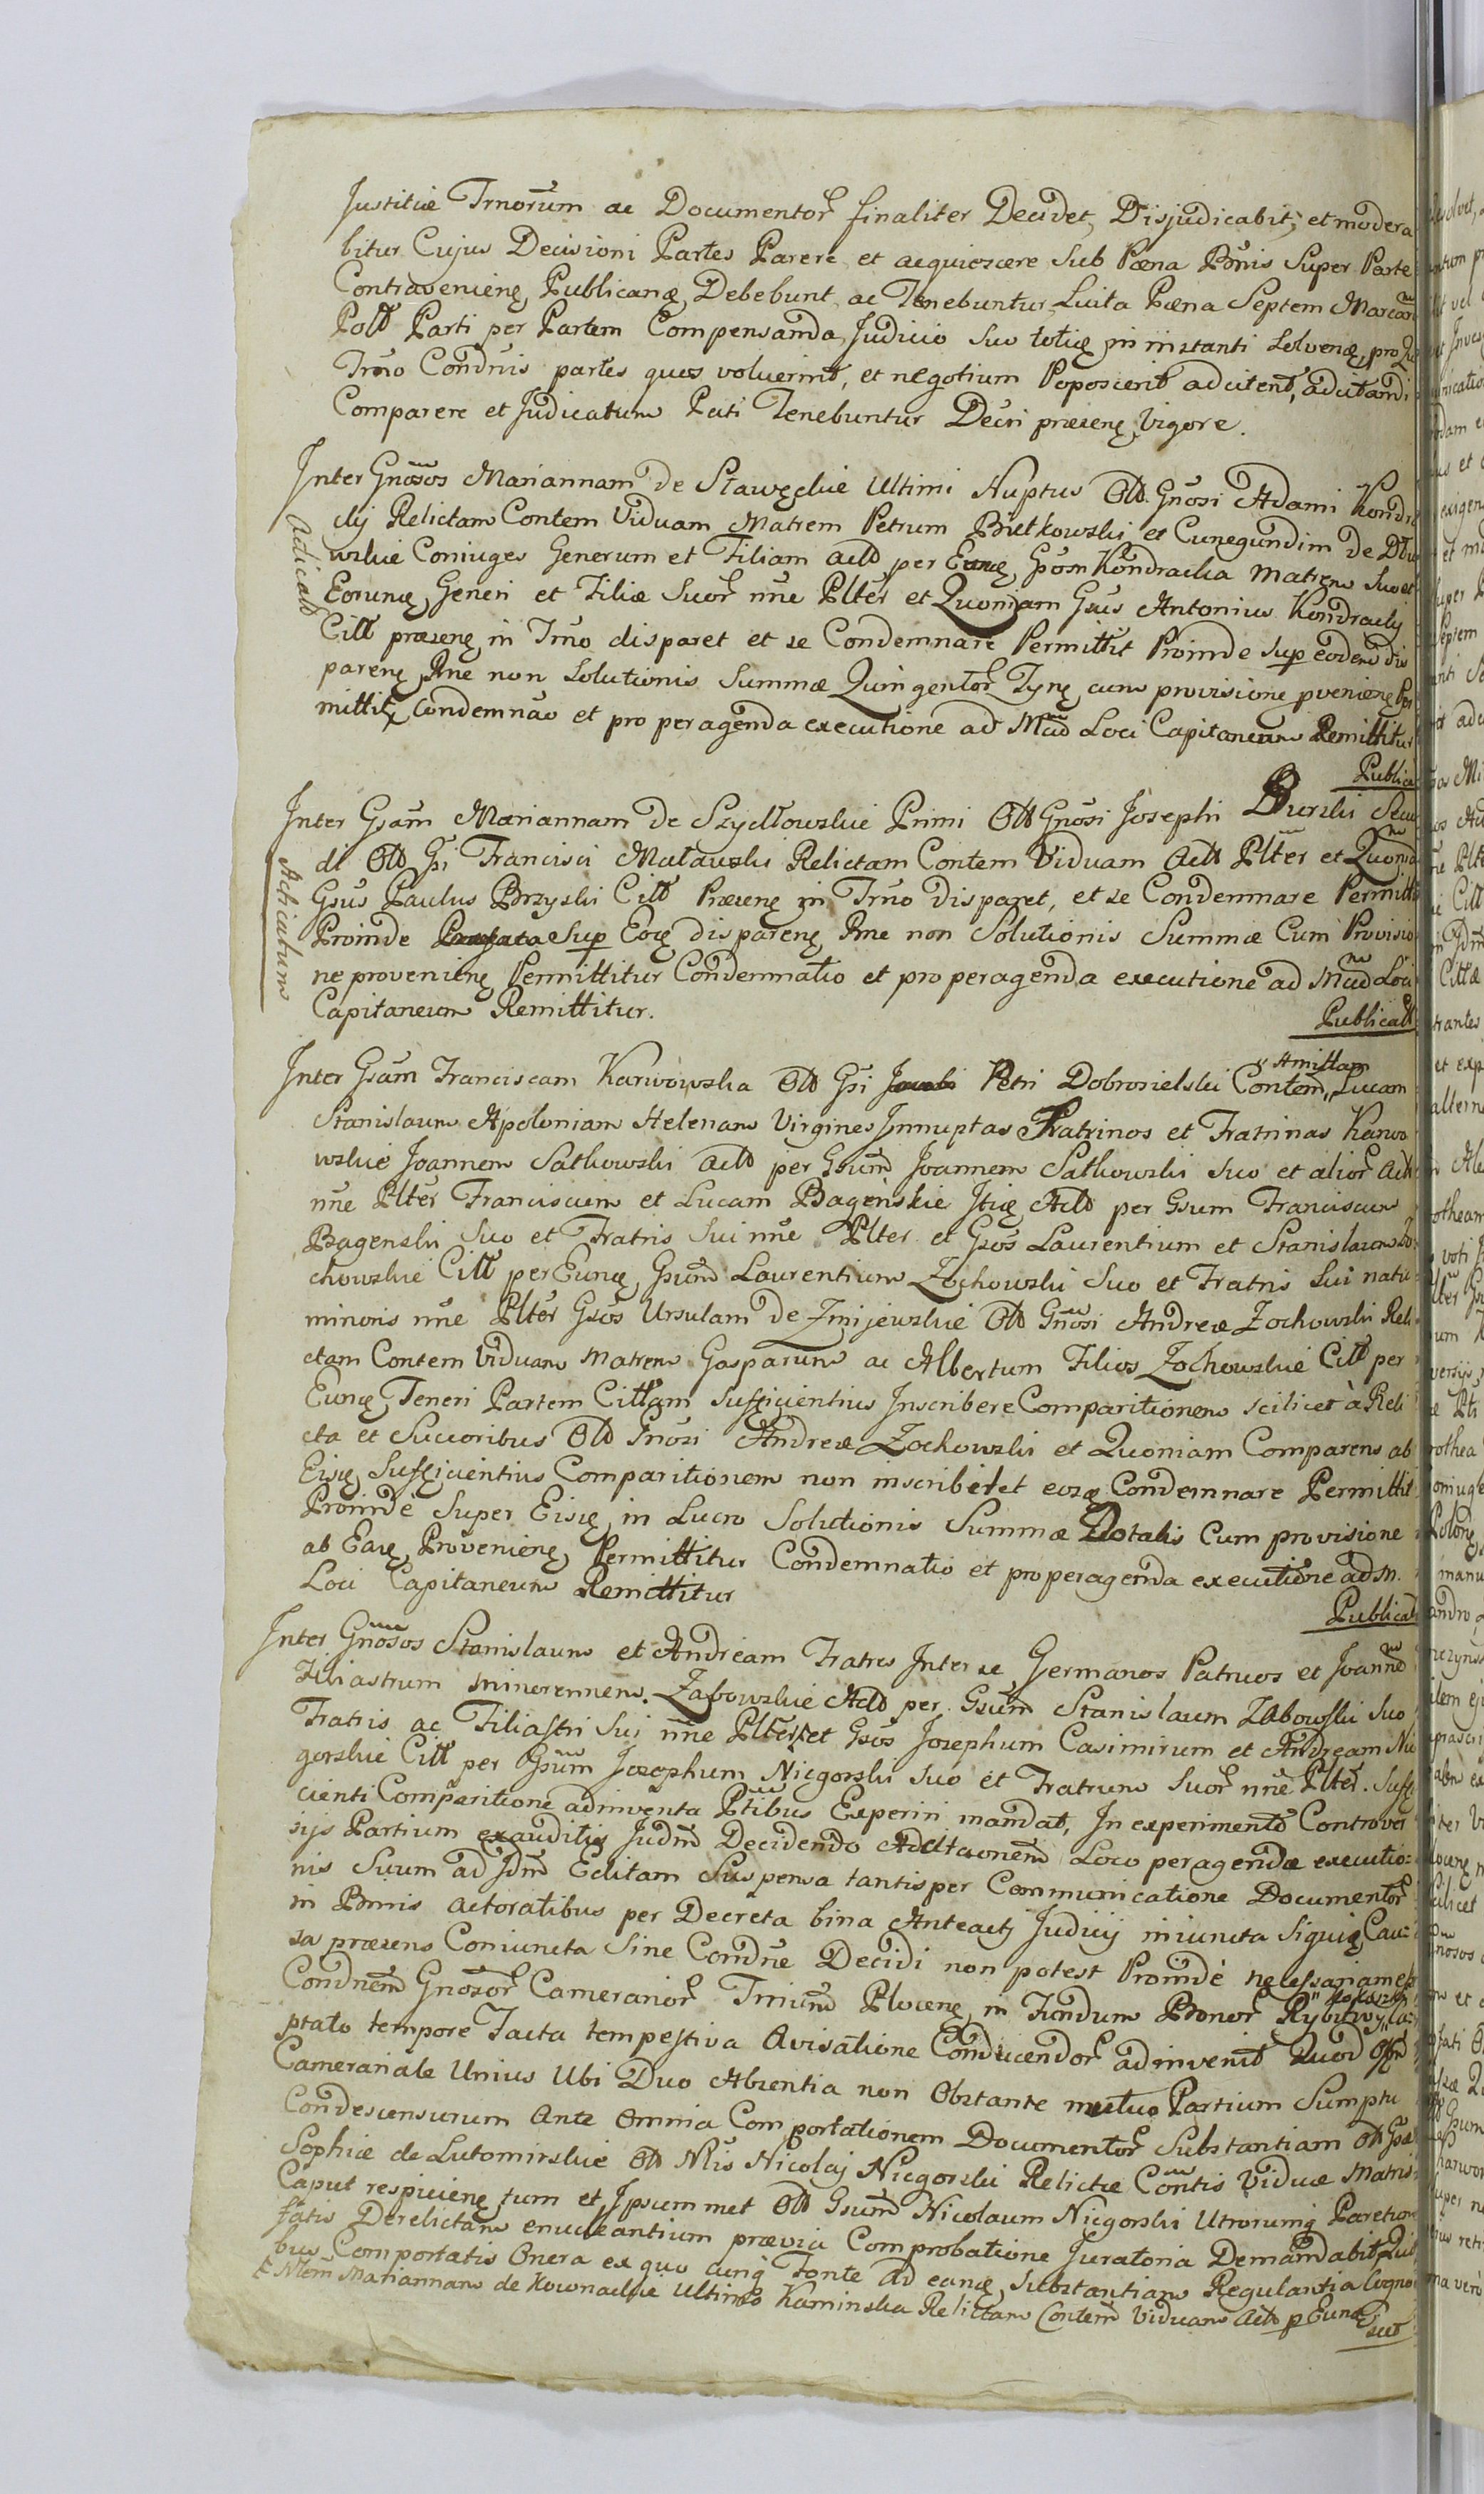 Justitiæ Trnorum ac Documentor finaliter Decidet, Disjudicabit, et modera
bitur Cujus Decisioni Partes Parere et acquiescere Sub Pæna Bonis Super Parte
Contravenienę Publicanę Debebunt ac Tenebuntur Luita Pæna Septem Marcar
Pold Parti per Partem Compensanda Judicio suo totię in instanti Solvenę, pro
Trno Condnis partes ques voluerint, et negotium Poposcerit adcitent, adcitandi
Comparere et Judicatum Pati Tenebuntur Decri præsenę Vigore.
Inter Gnosos Mariannam de Stawęckie Ultimi Nuptus Old Gnosi Adami Kondra
ckij Relictam Contem Viduam Matrem Petrum Bietkowski et Cunegundim de
wskie Coniuges Generum et Filiam Actt per Eunę Gsam Kondracka Matrem Suo et
Eorunę Generi et Filiæ Suor nne Plter et Quoniam Gsus Antonius Kondracky
Citt præsenę in Trno disparet et se Condemnare Permittit Proinde Sup eodem dis
parenę Rne non Solutionis Summæ Quingentor Tynę cum provisione pvenienę Per
mittit Condemnao et pro peragenda executione ad Mud Loci Capitaneum Remittitur
Publica
Adicatt
Inter Gsam Mariannam de Szydłowskie Primi Old Gnosi Josephi Burski Secun
di Old Gsi Francisci Malawski Relictam Contem Viduam Actt Plter et Quoniā
Gsus Paulus Brzyski Citt Præsenę in Trno disparet, et se Condemnare Permittit
Proinde Sup Eoę disparenę Rne non Solutionis Summæ Cum Provisio
ne provenienę Permittitur Condemnatio et pro peragenda executione ad Mud Loci
Capitaneum Remittitur.
Publicatt
Adicatum
Inter Gsam Franciscam Karwowska Old Gsi Petri Dobrosielski Contem, "Amittam Lucam
Stanislaum Apoloniam Helenam Virgines Innuptas Fratrinos et Fratrinas Karwo
wskie Joannem Satkowski Actt per Gsum Joannem Satkowski suo et alior Actt
nne Plter Franciscum et Lucam Bagęnskie Itię Actt per Gsum Franciscum
Bagenski Suo et Fratris Sui nne Plter et Gsos Laurentium et Stanislaum Zo
chowskie Citt per Eunę Gsum Laurentium Zochowski Suo et Fratris Sui natu
minoris nne Plter Gsos Ursulam de Zmijewskie Old Gnosi Andreæ Zochowski Reli
ctam Contem Viduam Matrem Gasparum ac Albertum Filios Zochowskie Citt per
Eunę Teneri Partem Cittam Sufficientius Inscribere Comparitionem scilicet à Reli
cta et Succoribus Old Gnosi Andreæ Zochowski et Quoniam Comparens ab
Eisę Sufficientius Comparitionem non inscribit et eosę Condemnare Permittit
Proinde Super Eisę in Lucro Solutionis Summæ Dotalis Cum provisione
ab Eaę Provenienę Permittitur Condemnatio et pro peragenda executione ad M.
Loci Capitaneum Remittitur
Publicatt
Inter Gnosos Stanislaum et Andream Fratres Inter se Germanos Patruos et Joannē
Filiastrum minorennem. Zabowskie Actt per Gsum Stanislaum Zabowski Suo
Fratris ac Filiastri Sui nne Plter et Gsos Josephum Casimirum et Andream Nie
gorskie Citt per Gsum Josephum Niegorski Suo et Fratrum Suor nne Plter. Suffi
cienti Comparitione adinventa Ptibus Experiri mandat, In experimento Controver
sijs Partium exauditis Judm Decidendo Adcitaonem Loco peragendæ executio=
nis Suum ad Jdm Editam Suspensa tantisper Communicatione Documentor
in Bonis Actoratibus per Decreta bina Anteacti Judicij iniuncta Siquię Cau=
sa præsens Coniuncta Sine Condne Decidi non potest Proinde necessariam esse
Condnem Gnosor Cameranior Trnium Plocenę in Fundum Bonor
ptato tempore Facta tempestiva Avisatione Conducendor adinvenit Quod Offm
Camerariale Unius Ubi Duo Absentia non Obstante mutuo Partium Sumptu
Condescensurum Ante Omnia Comportationem Documentor Substantiam Old Gsæ
Sophiæ de Lutomirskie Old Mlis Nicolaj Niegorski Relictæ Contis Viduæ Matris
Caput respicienę tum et Ipsummet Old Gsum Nicolaum Niegorski Utrorumq Paretum
fatis Derelictam enucleantium prævia Comprobatione Juratoria Demandabit Qui
bus Comportatis Onera ex quo cunq Fonte ad eanę Substantiam Regulantia Cogno
Mlem Mariannam de Kownackie Ultimo Kaminska Relictam Contem Viduam Actt p Eunę